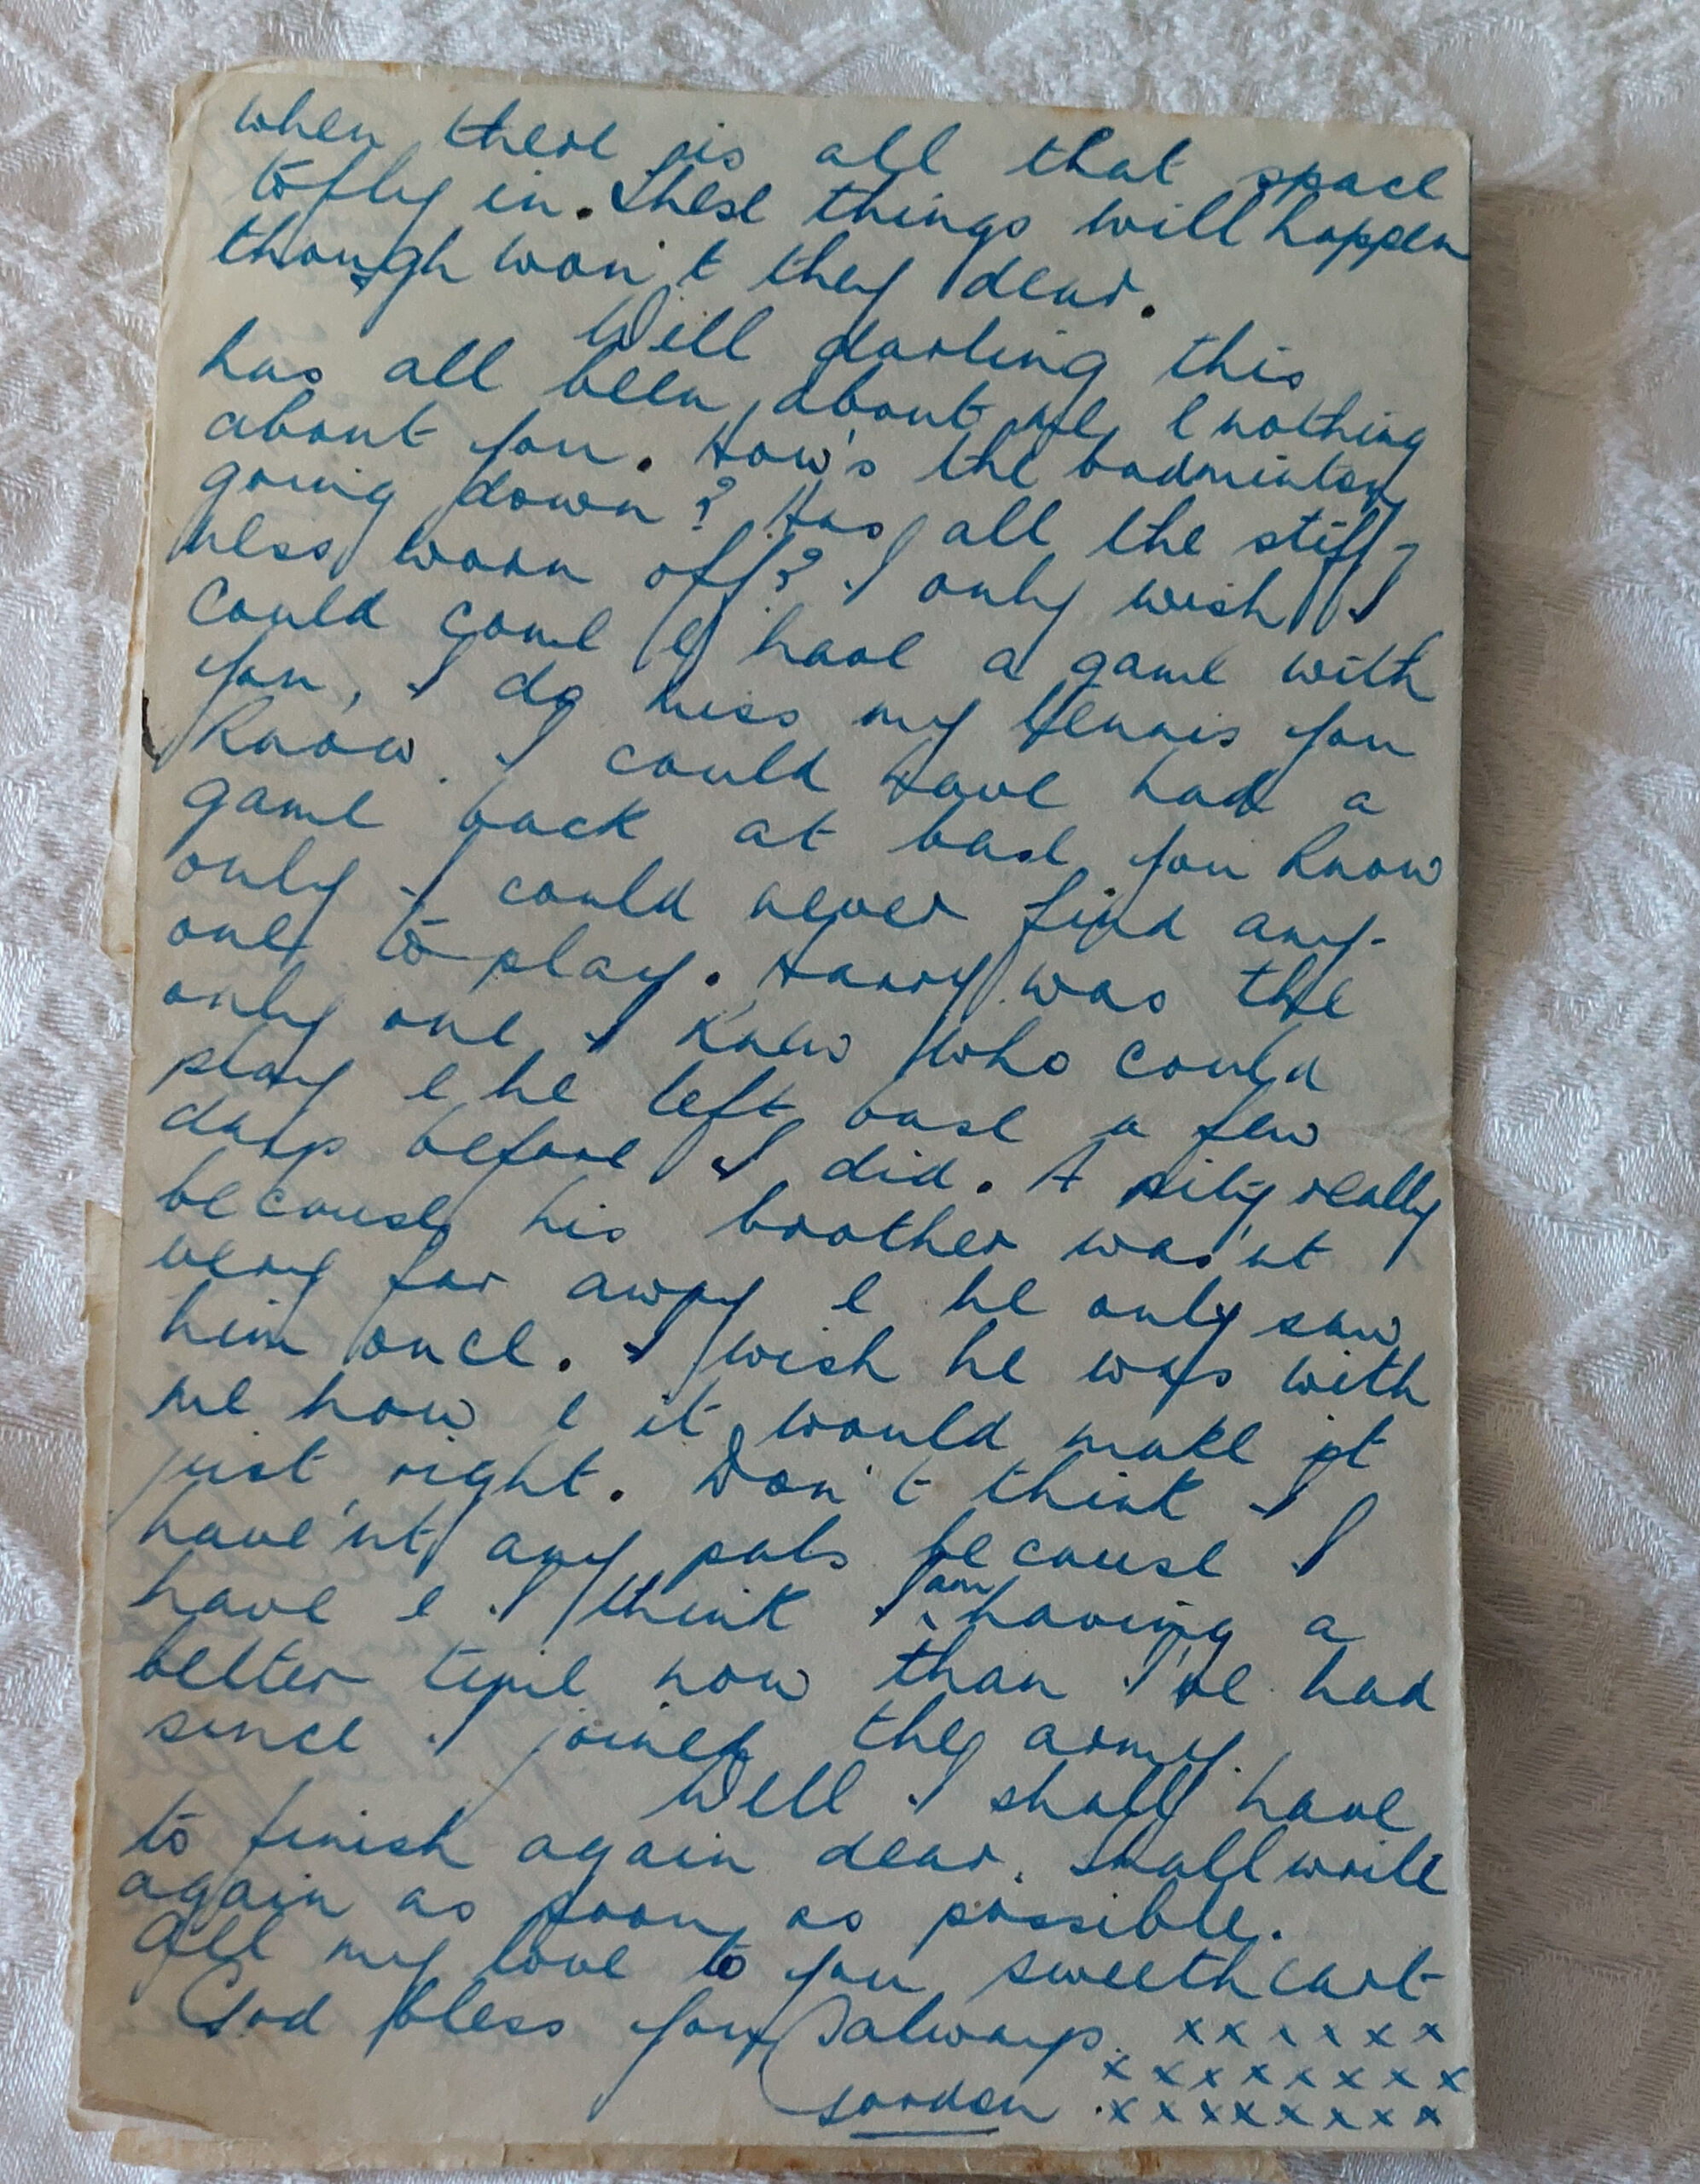 when there is all that space
to fly in. These things will happen
though won't they dear.
Well darling this
has all been about me & nothing
about you. How's the badminton
going down? Has all the stiff-
ness worn off? I only wish I
could come & have a game with
you, I do miss my tennis you
know. I could have had a
game back at base you know
only I could never find any-
one to play. Harry was the
only one I knew who could
play & he left base a few
days before I did. A pity really
because his brother was'nt
very far away & he only saw
him once. I wish he was with
me now & it would make it
just right. Don't think I
have'nt any pals because I
have & I think I am having a
better time now than I've had
since I joined the army.
Well I shall have
to finish again dear. Shall write
again as soon as possible.
All my love to you sweetheart
God bless you always. x x x x x x
x x x x x x x x
Gordon x x x x x x x x